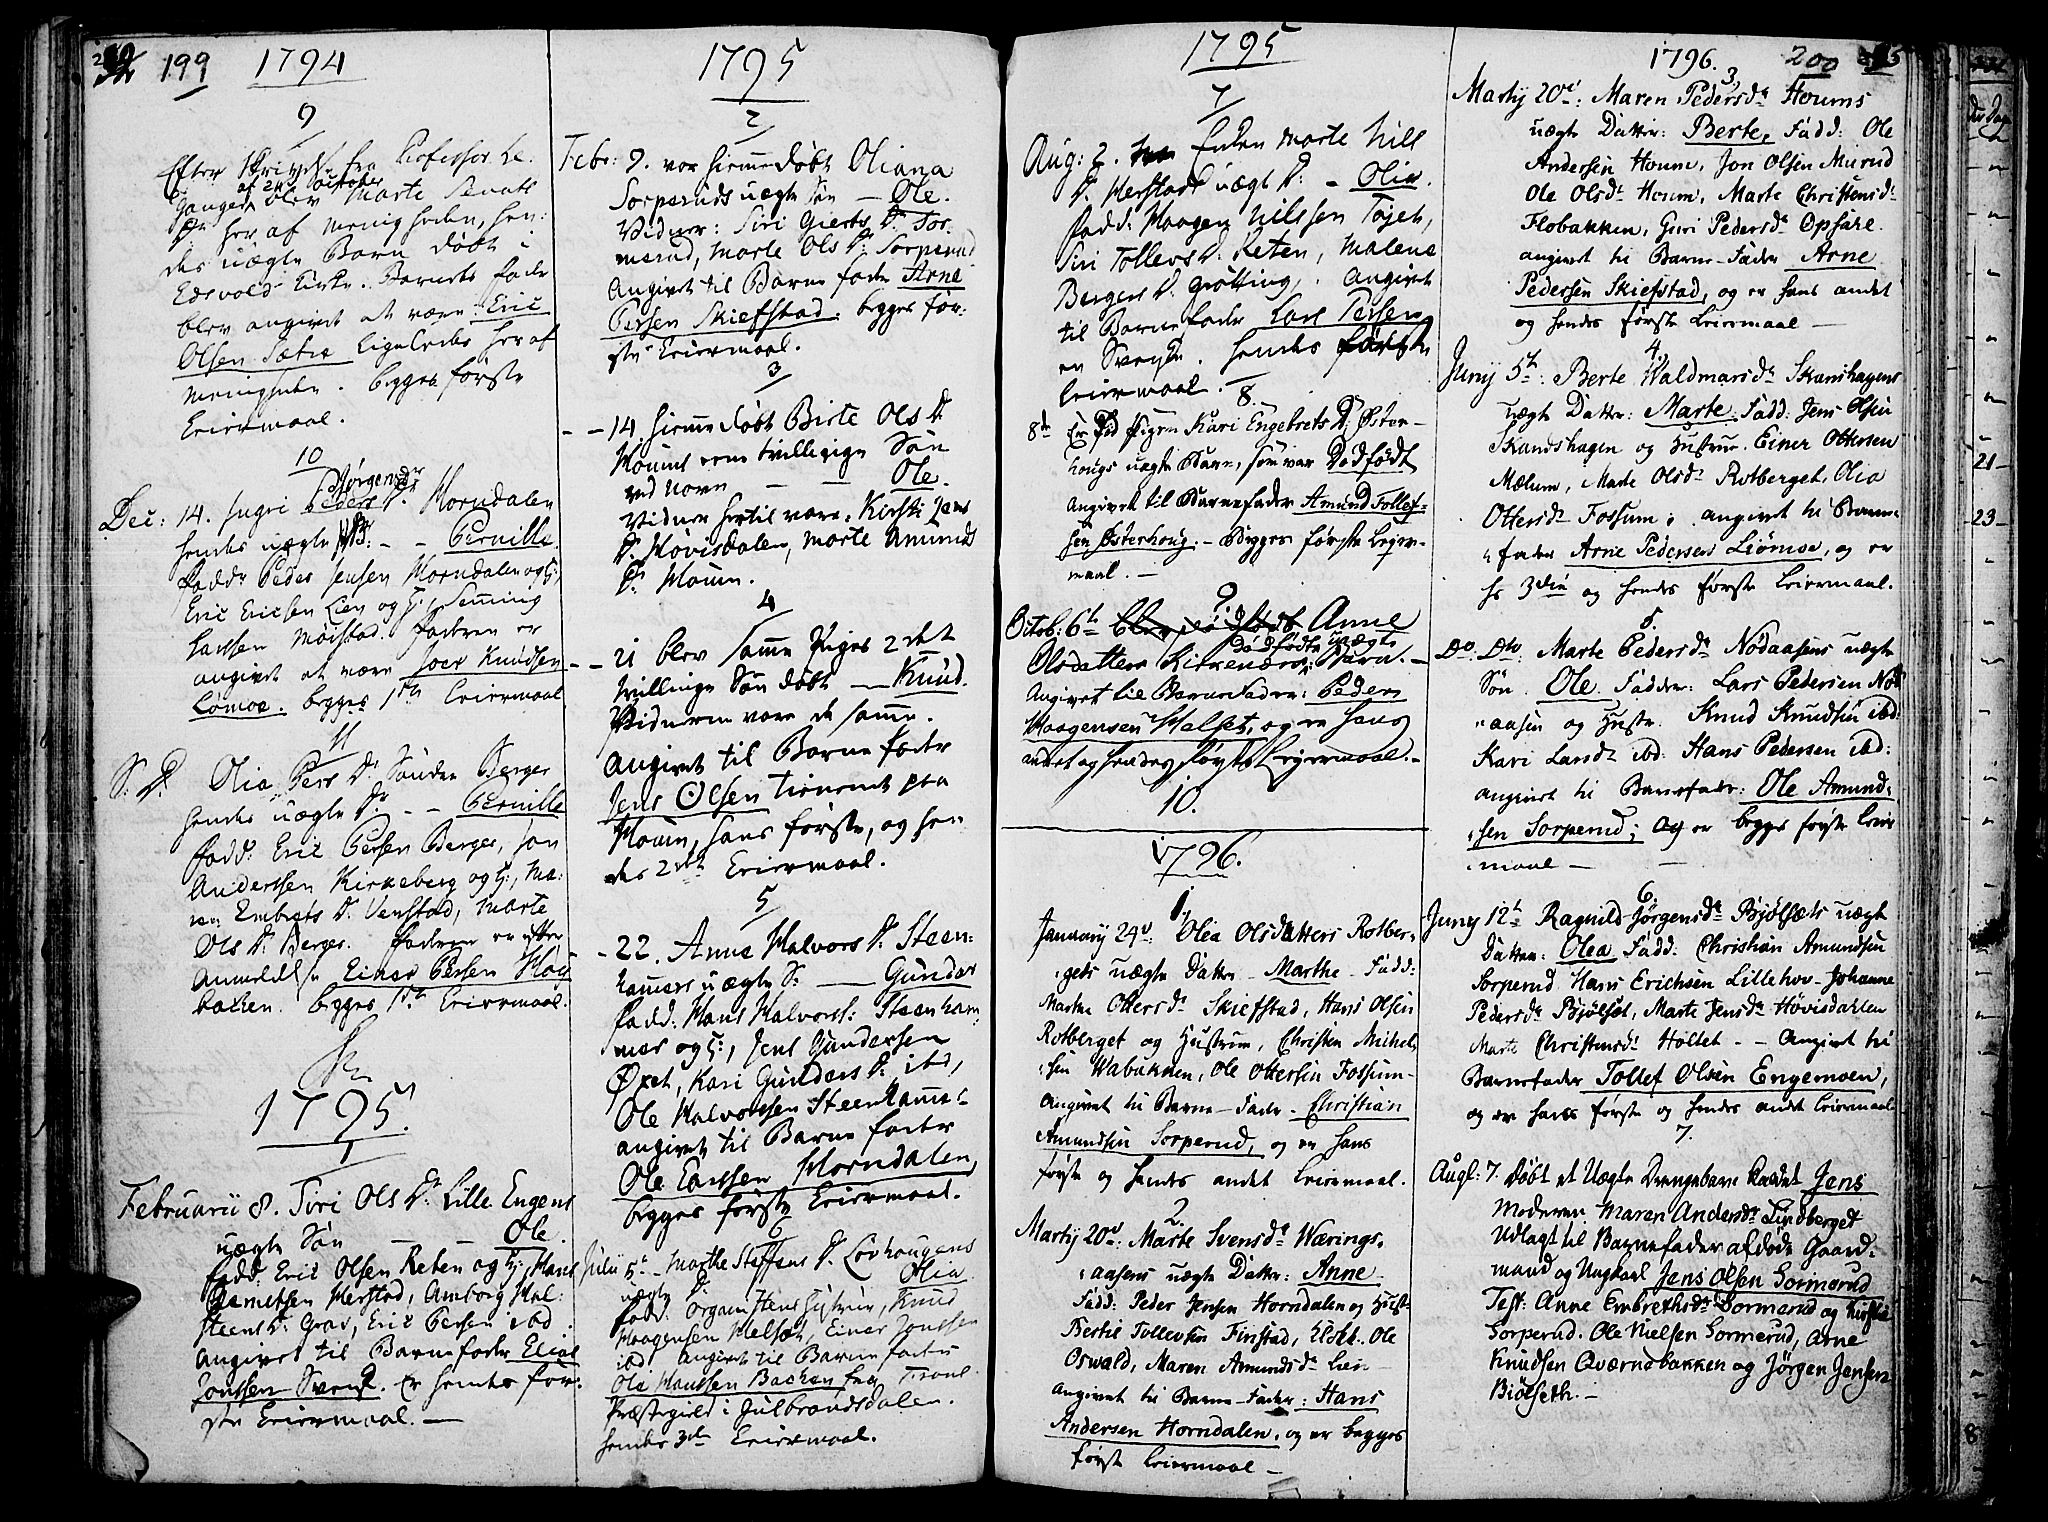 199 1794
9
Efter Skrivelse fra Professor Le-
ganger af 24 October blev Marte Senats
Dr. her af Menigheden, hen:
des uægte Barn døbt i
Edsvold Kirke. Barnets fader
blev angivet at være: Eric
Olsen Sætre ligeledes her af
Menigheden. begges første
Leiermaal.
10
Dec: 14. Ingri Jørgensdr Horndalen
hendes uægte - - Pernille.
fadd. Peder Jensen Horndalen og H:,
Eric Ericsen Lien og H:, Semming
Larssen Møistad. faderen er
angivet at være Joer Knudsen
Lømoe. begges 1ste Leiermaal
11
S. D. Olia Pers Dr. Søndre Berger
hendes uægte Dr. - - Pernille
fadd: Eric Persen Berger, Jon
Anderssen Kirkeberg og H:, Ma:
ren Embrets Dr. Venstad, Marte
Ols Dr. Berger. faderen er efter
Anmeldelse Einer Persen Hog
bakken. begges 1ste Leiermaal.
1795.
1
Februarii 8. Siri Ols Dr. Lille Engens
uægte Søn - - Ole.
fadd: Eric Olsen Reten og H:, Hans
Herstad, Amborg Hal:
steens Dr. Grav, Eric Persen ibd.
Angivet til Barnefader Elias
Jonssen Svensk. Er hendes før:
ste Leiermaal. —
1795
2
Febr: 9. var hiemmedøbt Oliana
Sorperuds uægte Søn — Ole.
Vidner: Siri Gierts Dr. Sor:
merud, Marte Ols Dr. Sorperud
Angivet til Barnefader Arne
Persen Skiefstad. begges før:
ste Leiermaal.
3
- - 14 hiemmedøbt Birte Ols Dr.
Houms een tvillinge Søn
ved Navn — — Ole.
Vidner hertil vare: Kirsti Jens
Dr. Høvisdalen, Marte Amunds
Dr. Houm.
4
- - 21 blev samme Piges 2det
tvillinge Søn døbt — Knud.
Vidnerne vare de samme.
Angivet til Barnefader
Jens Olsen tienende paa
Houm, hans første, og hen
des 2det Leiermaal.
5
- 22. Anne Halvors Dr. Steen:
hamers uægte S: — Gunder
fadd: Hans Halvorss: Steenham:
mer og H:, Jens Gundersen
Øxet, Kari Gunders Dr. ibd,
Ole Halvorssen Steenhamer
angivet til Barnefader
Ole Larssen Horndalen,
begges første Leiermaal.
6
Julii 5. - Marthe Steffens Dr. Lovhougens
uægte Dr. Olia
fadd: Hustrue, Knud
Haagensen Melset, Einer Jonssen
ibd Angivet til Barnefader
Ole Hanssen Backen fra
Præstegield i Gulbrandsdalen.
hendes 3die Leiermaal.
1795
7
Aug: 2. Enken Marte Nills
Dr. Herstad uægte D: - Olia.
fadd: Haagen Nilssen Tøjet,
Siri Tollevs Dr. Reten, Malene
Bergers Dr. Grøtting,. Angivet
til Barnefader Lars Persen
en Svensk. hendes
Leiermaal.
8.
8de Er Pigen Kari Engebrets D: Øster-
hougs uægte Barn, som var Dødfødt
Angivet til Barnefader Amund Tollef-
sen Østerhoug. - Begges første Lejer-
maal. -
9
Octob: 6te Anne
Olsdatters Kirkenærs dødfødte uægte Barn. -
Angivet til Barnefader: Peder
Haagensen Halset, og er hans
andet og hendes første Lejermaal. -
10.
1796.
1.
January 24d: Olea Olsdatters Rotber-
gets uægte Datter - Marthe - Fadd:
Marthe Ottersdr Skiefstad, Hans Olsen
Rotberget og Hustrue, Christen Michel-
sen Wabakken, Ole Ottersen Fossum -
Angivet til Barne-Fader - Christian
Amundsen Sorperud, og er hans
første og hendes andet Leiermaal.
2.
Martij 20d: Marte Svensdr Wærings-
aasens uægte Datter: Anne
Fadd: Peder Jensen Horndalen og Hustr:
Bertil Tollevsen Finstad, Ole
Oswald, Maren Amundsdr Lien -
Angivet til Barne-Fader: Hans
Andersen Horndalen. og er begges
første Leiermaal —
1796. 200
3,
Martij 20d: Maren Pedersdr Houms
uægte Datter: Berte, Fadd: Ole
Andersen Houm, Jon Olsen Murud
Ole Olsdr Houm, Marte Christensdr
Flobakken, Guri Pedersdr Opsahl.
angivet til Barne-Fader Arne
Pedersen Skiefstad, og er hans andet
og hendes første Leiermaal —
4.
Junij 5te: Berte Waldmarsdr Skanshagens
uægte Datter: Marte. Fadd: Jens Olsen
Skandshagen og Hustrue. Einer Ottersen
Mælum, Marte Olsdr Rotberget, Olia
Ottersdr Fossum; angivet til Barne-
fader Arne Pedersen Liømoe, og er
hs 3die og hendes første Leiermaal.
5.
Do. Do: Marte Pedersdr Nødaasens uægte
Søn. Ole. Fadder: Lars Pedersen Nød
aasen og Hustr. Knud Knudsen ibd:
Kari Larsdr ibd: Hans Pedersen ibd:
angivet til Barnefader: Ole Amund-
sen Sorperud; og er begges første Leier
maal —
6.
Juny 12te Ragnild Jørgensdr Bjølsets uægte
Datter: Olea Fadd: Christian Amundsen
Sorperud Hans Erichsen Lillehov - Johanne
Pedersdr Bjølset, Marte Jensdr Høvisdahlen
Marte Christensdr Holtet - - Angivet til
Barnefader Tollef Olsen Engemoen,
og er hans første og hendes andet Leiermaal
7.
Augl: 7. Døbt et Uægte Drengebarn kaldet Jens
Moderen Maren Andersdr Lindberget
Udlagt til Barnefader afdøde Gaard-
mand og Ungkarl Jens Olsen Sormerud
Test: Anne Embrethsdr Sormerud og Kirstie
Sorperud. Ole Nielsen Sormerud, Arne
Knudsen Qværnebakken og Jørgen Jensen
Biølseth. -
21
23
8